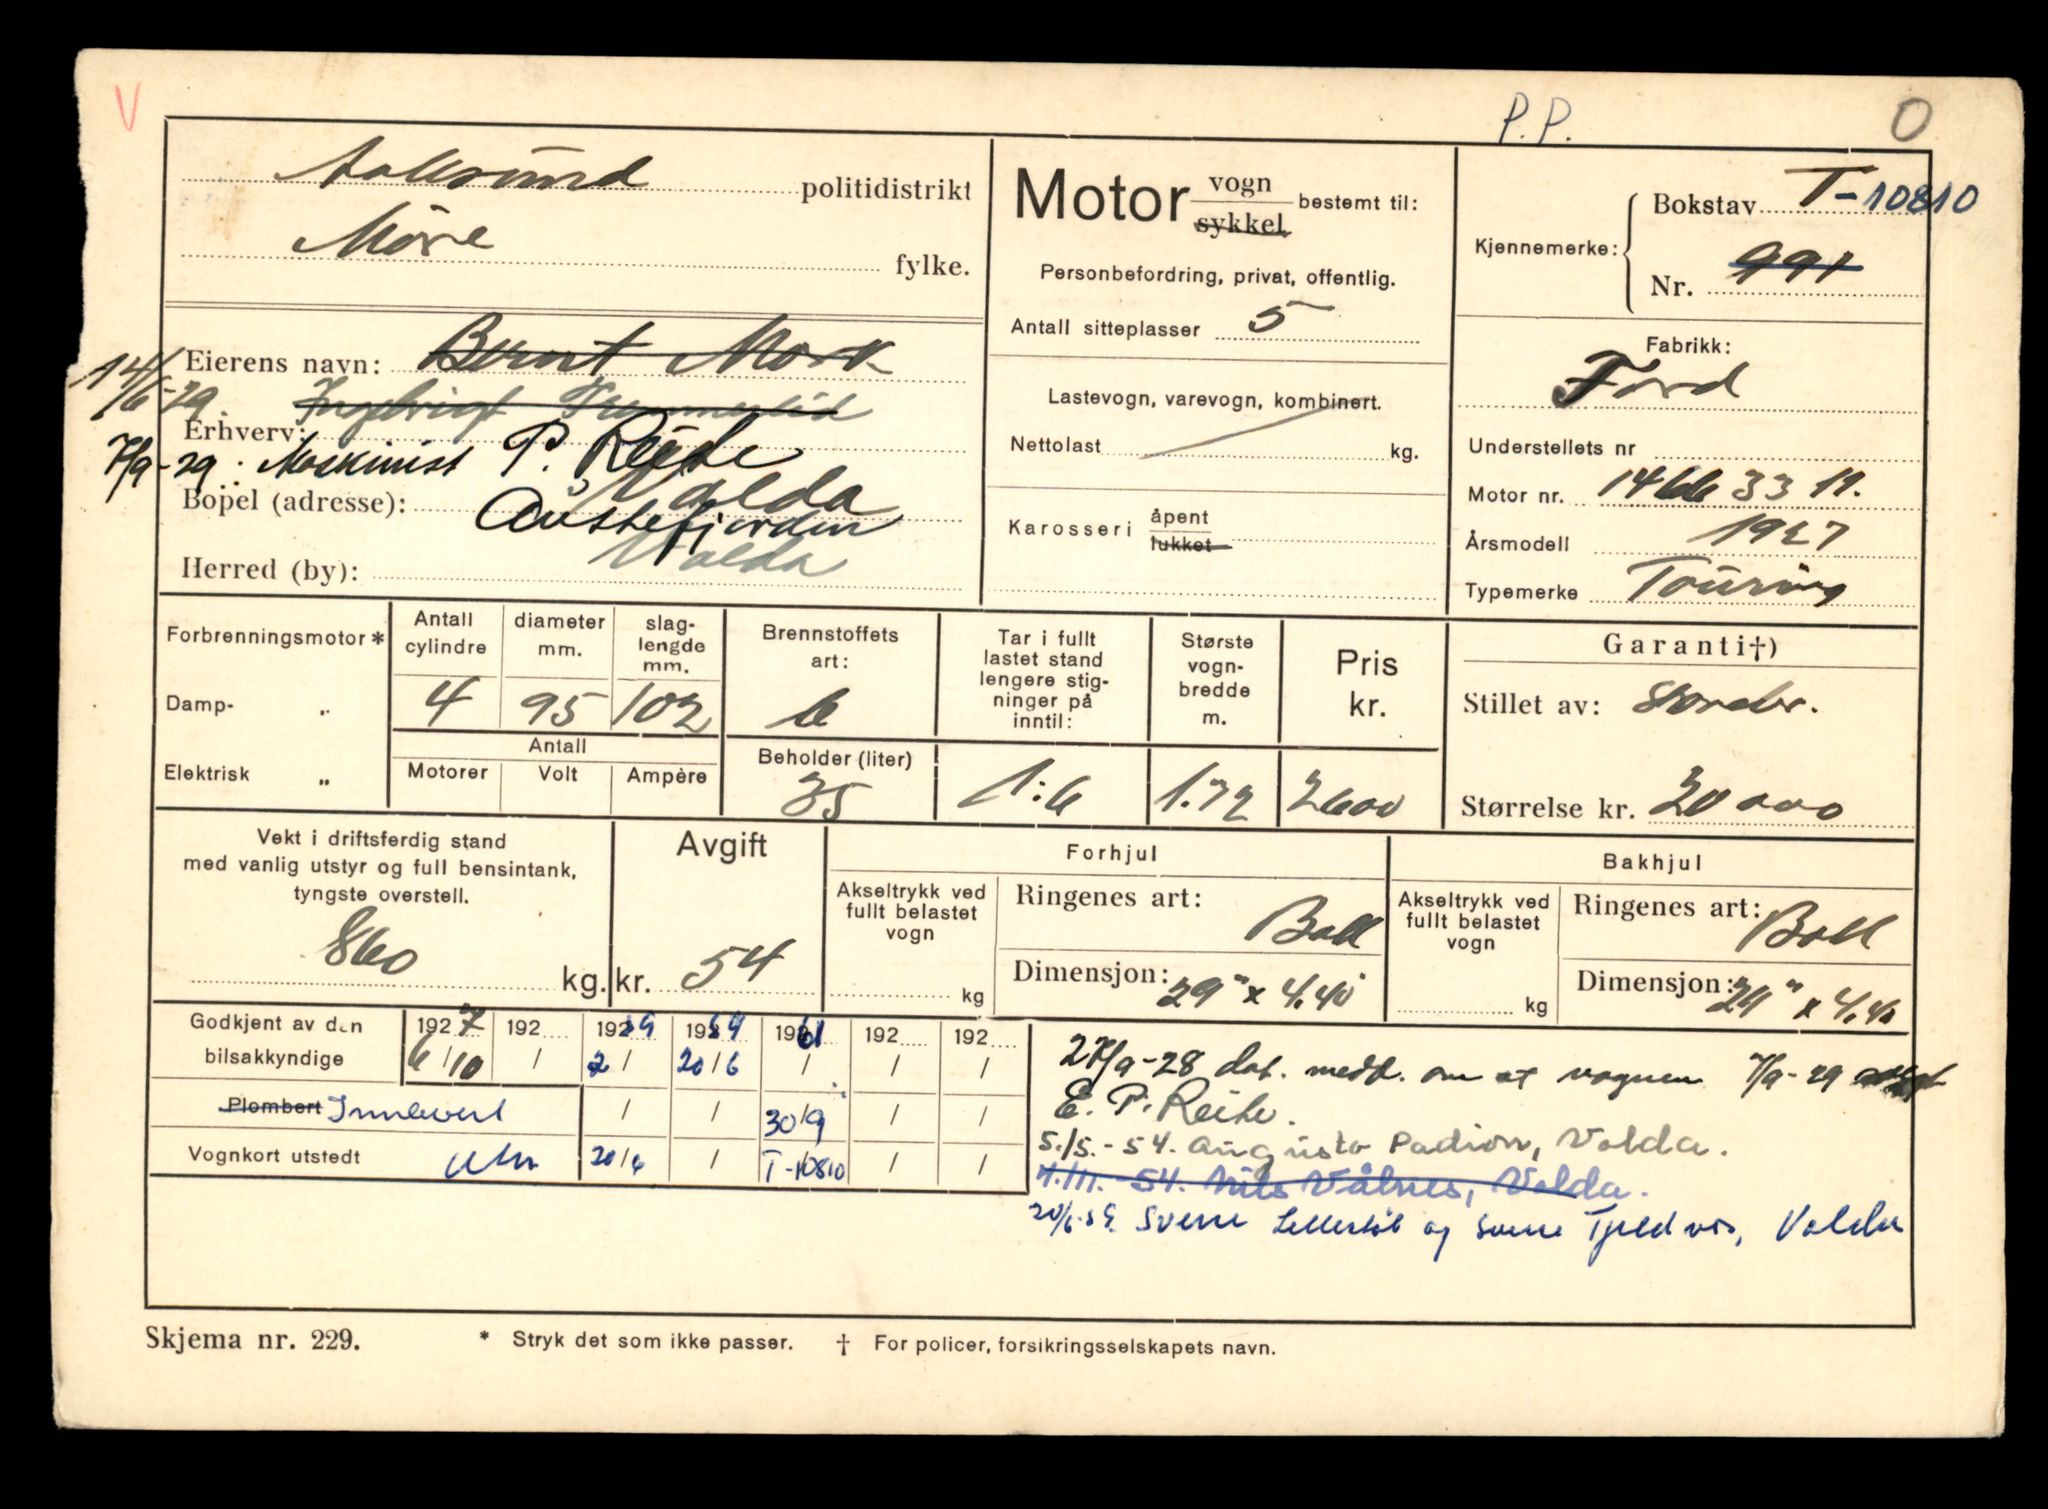 V
P.P.
O
Aalesund politidistrikt
Møre fylke.
Motor vogn sykkel bestemt til:
Personbefordring, privat, offentlig.
Antall sitteplasser 5
Lastevogn, varevogn, kombinert.
Nettolast kg.
Karosseri åpent lukket
Kjennemerke: Bokstav T-10810
Nr. 991
Fabrikk:
Ford
Understellets nr
Motor nr. 14663311.
Årsmodell 1927
Typemerke Touring
Eierens navn: Bernt Mork
14/6-29 Ingebrigt
Erhverv:
7/9-29: Maskinist P. Reite
Volda
Bopel (adresse): Austefjorden
Volda
Herred (by):
Forbrenningsmotor *
Damp- „
Elektrisk „
Antall cylindre
4
diameter mm.
95
slag-
lengde
mm.
102
Antall
Motorer Volt Ampère
Brennstoffets
art:
b
Beholder (liter)
35
Tar i fullt
lastet stand
lengere stig-
ninger på
inntil:
1:6
Største
vogn-
bredde
m.
1.72
Pris
kr.
2600
Garanti†)
Stillet av:
Størrelse kr. 20 000
Vekt i driftsferdig stand
med vanlig utstyr og full bensintank,
tyngste overstell.
860 kg.
Avgift
kr. 54
Forhjul
Akseltrykk ved
fullt belastet
vogn
kg
Ringenes art:
Ball
Dimensjon: 29" x 4.40
Bakhjul
Akseltrykk ved
fullt belastet
vogn
kg
Ringenes art:
Ball
Dimensjon: 29" x 4.40
Godkjent av den 1927 192 192 59 192 54 192 61 192 192
bilsakkyndige 6/10 / 2/ 20/6 / / /
Plombert Innlevert / / 30/9 / /
Vognkort utstedt 20/6 / T-10810 / /
27/9-28 dat. medd. om at vognen 7/9-29
E. P. Reite.
5./5.-54. Augusto Padion, Volda.
4./11.-54. Nils Vålnes, Volda.
20/6-59. Sverre og Sverre Tjeldvis, Volda
Skjema nr. 229.
* Stryk det som ikke passer. † For policer, forsikringsselskapets navn.